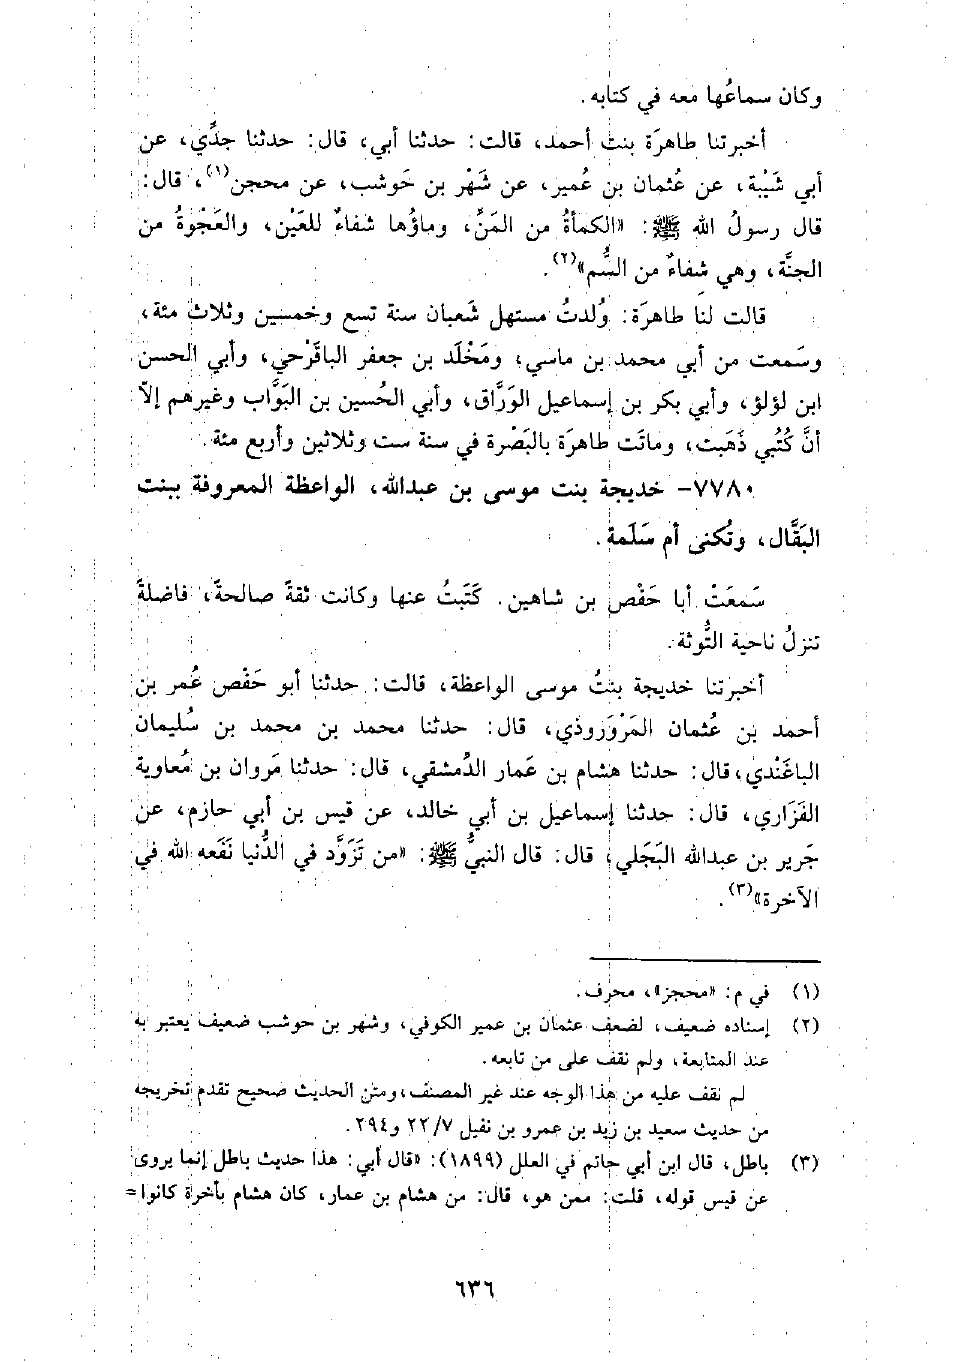 وكان سماعُها معه في كتابه.
أخبرتنا طاهرَة بنت أحمد، قالت: حدثنا أبي، قال: حدثنا جدِّي، عن
أبي شَيْبة، عن عُثمان بن عُمير، عن شَهْر بن حَوشب، عن محجن(١)، قال:
قال رسولُ الله ﷺ: «الكمأةُ من المَنِّ، وماؤُها شفاءٌ للعَيْن، والعَجْوةُ من
الجنَّة، وهي شفاءٌ من السُّم»(٢).
قالت لنا طاهرَة: وُلدتُ مستهل شَعبان سنة تسع وخمسين وثلاث مئة،
وسَمعت من أبي محمد بن ماسي، ومَخْلَد بن جعفر الباقَرْحي، وأبي الحسن
ابن لؤلؤ، وأبي بكر بن إسماعيل الوَرَّاق، وأبي الحُسين بن البَوَّاب وغيرهم إلاّ
أنَّ كُتُبي ذَهَبت، وماتَت طاهرَة بالبَصْرة في سنة ست وثلاثين وأربع مئة.
٧٧٨٠- خديجة بنت موسى بن عبدالله، الواعظة المعروفة ببنت
البَقَّال، وتُكنى أم سَلَمة.
سَمعَتْ أبا حَفْص بن شاهين. كَتَبتُ عنها وكانت ثقةً صالحةً، فاضلةً
تنزلُ ناحية التُّوثة.
أخبرتنا خديجة بنتُ موسى الواعظة، قالت: حدثنا أبو حَفْص عُمر بن
أحمد بن عُثمان المَرْوَرُوذي، قال: حدثنا محمد بن محمد بن سُليمان
الباغَندي، قال: حدثنا هشام بن عَمار الدِّمشقي، قال: حدثنا مَروان بن مُعاوية
الفَزَاري، قال: حدثنا إسماعيل بن أبي خالد، عن قيس بن أبي حازم، عن
جَرير بن عبدالله البَجَلي، قال: قال النبيُّ ﷺ: «من تَزَوَّد في الدُّنيا نَفَعه الله في
الآخرة»(٣).
(١) في م: «محجز»، محرف.
(٢) إسناده ضعيف، لضعف عثمان بن عمير الكوفي، وشهر بن حوشب ضعيف يعتبر به
عند المتابعة، ولم نقف على من تابعه.
لم نقف عليه من هذا الوجه عند غير المصنف، ومتن الحديث صحيح تقدم تخريجه
من حديث سعيد بن زيد بن عمرو بن نفيل ٧/ ٢٢ و٢٩٤.
(٣) باطل، قال ابن أبي حاتم في العلل (١٨٩٩): «قال أبي: هذا حديث باطل إنما يروى
عن قيس قوله، قلت: ممن هو، قال: من هشام بن عمار، كان هشام بأخرة كانوا=
٦٣٦